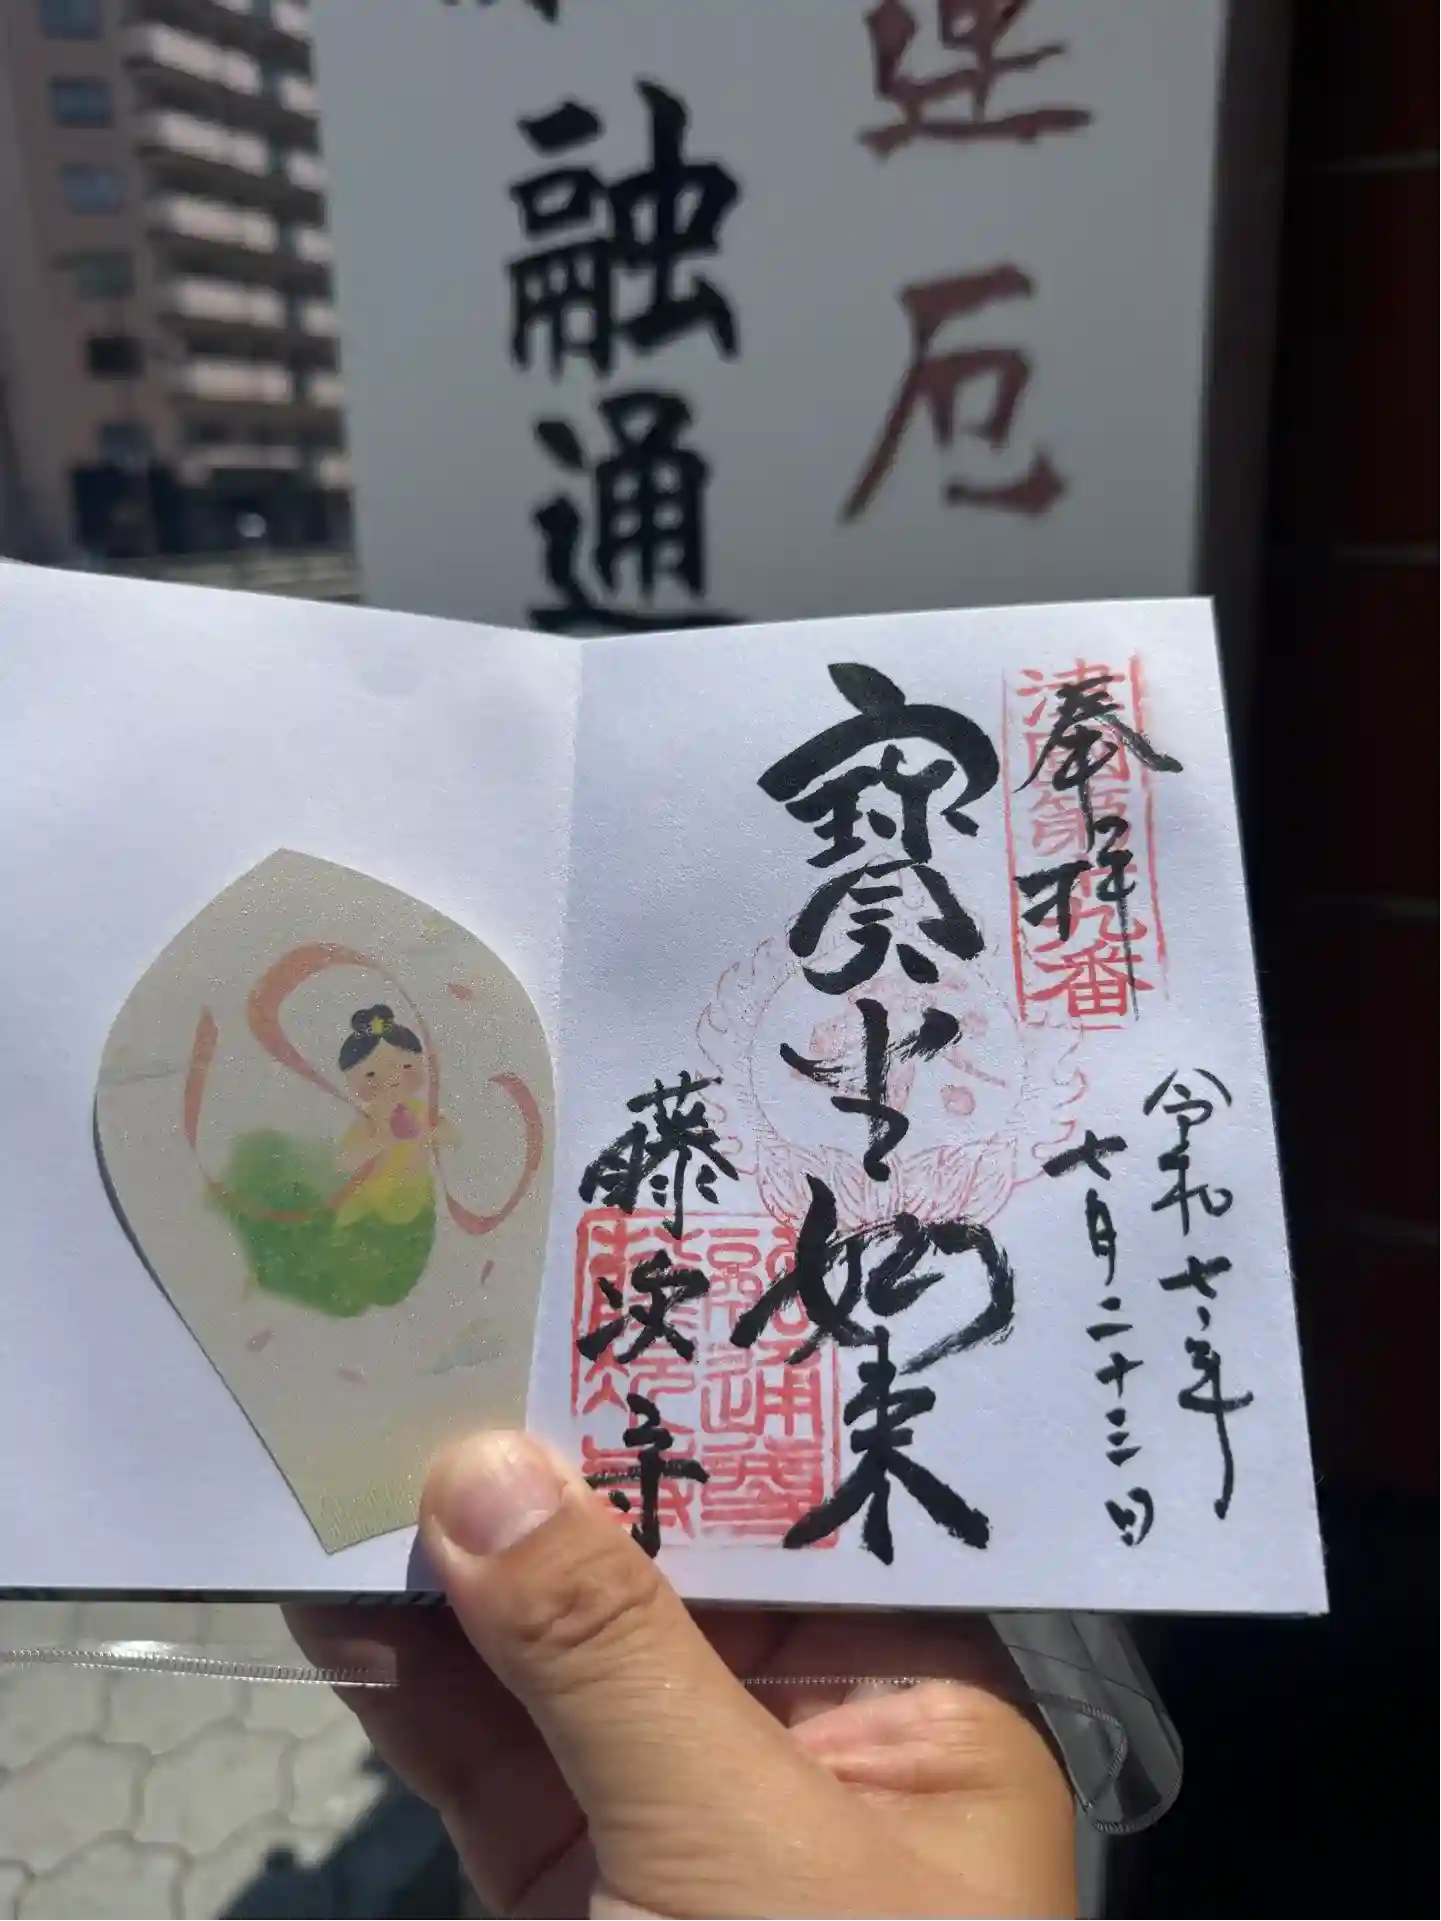 厄
融通
奉拝
津國第九番
令和七年
七月二十三日
寶生如来
藤次寺
融通尊
藤次寺